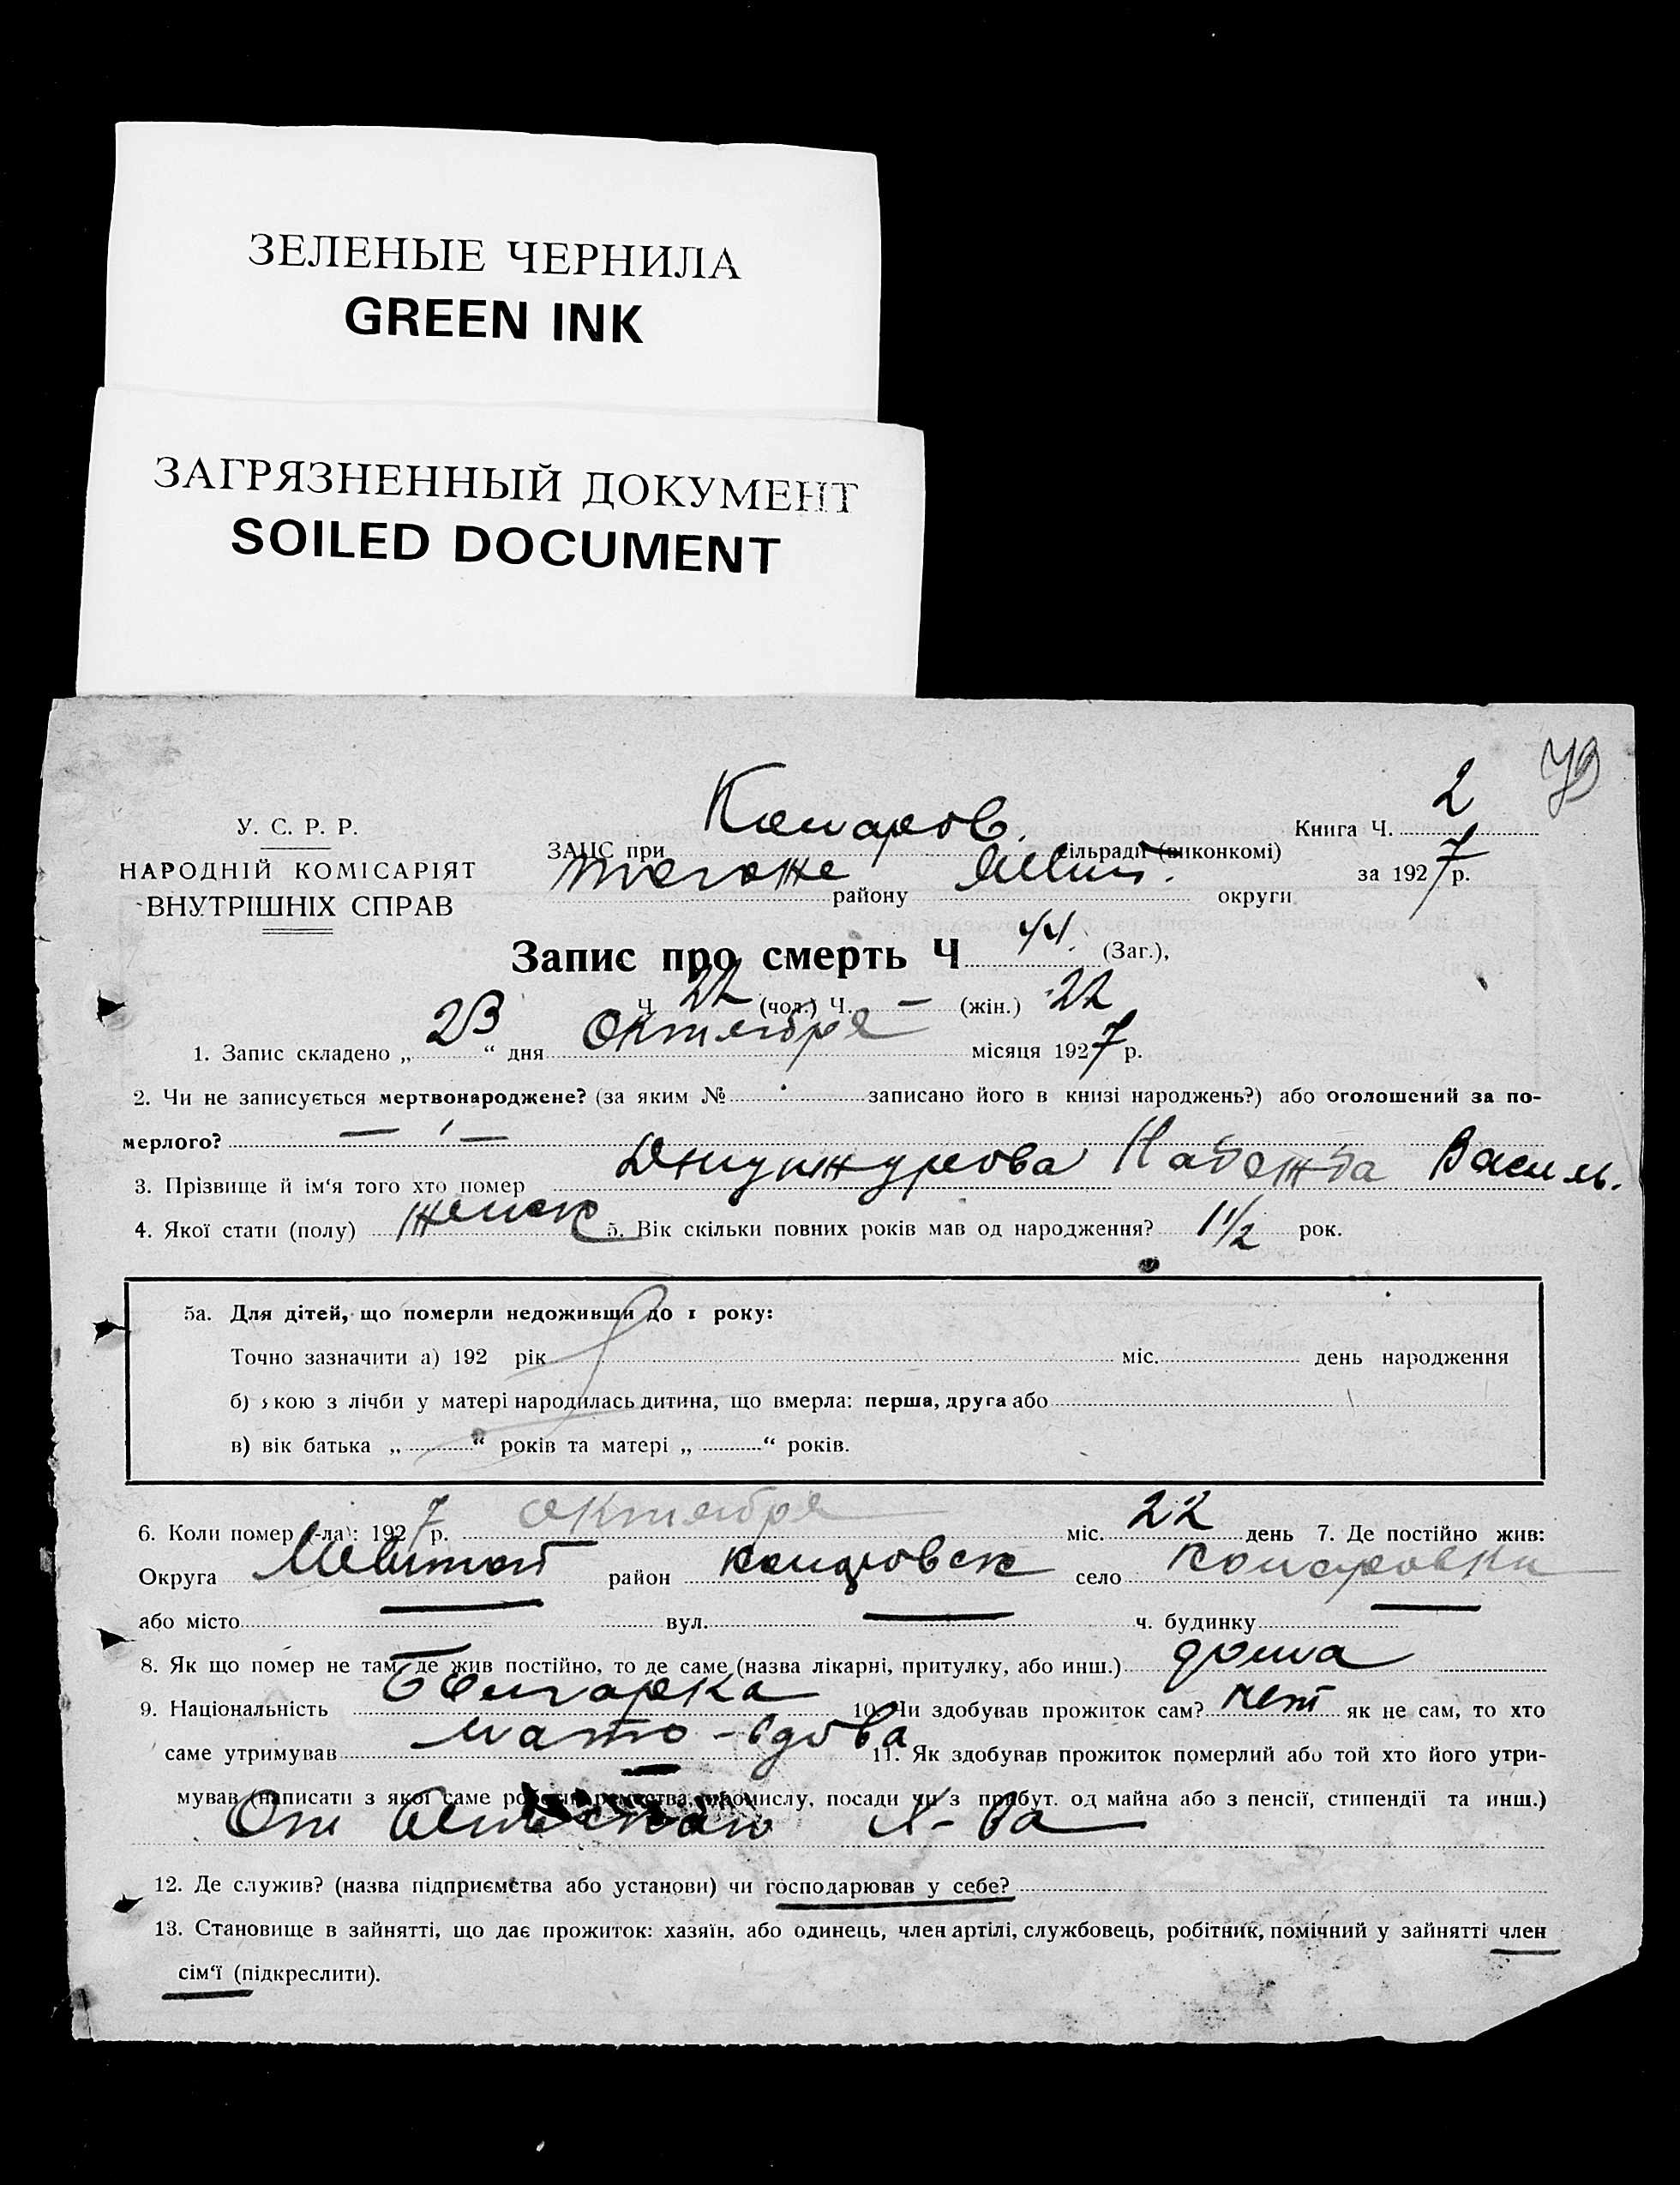 ЗЕЛЕНЫЕ ЧЕРНИЛА
GREEN INK
ЗАГРЯЗНЕННЫЙ ДОКУМЕНТ
SOILED DOCUMENT
79
У. С. Р. Р.
НАРОДНІЙ КОМІСАРІЯТ
ВНУТРІШНІХ СПРАВ
Книга Ч. 2
за 1927 р.
ЗАГС при Комаров. сільраді (виконкомі)
тогоже району Мелит. округи
Запис про смерть Ч 44. (Заг.),
Ч. 22 (чол.) Ч. — (жін.) 22
1. Запис складено „ 23 “ дня Октября місяця 1927 р.
2. Чи не записується мертвонароджене? (за яким № записано його в книзі народжень?) або оголошений за по-
мерлого?
3. Прізвище й ім‘я того хто помер Надежда Василь.
4. Якої стати (полу) женск 5. Вік скільки повних років мав од народження? 1 1/2 рок.
5а. Для дітей, що померли недоживши до 1 року:
Точно зазначити а) 192 рік міс. день народження
б) якою з лічби у матері народилась дитина, що вмерла: перша, друга або
в) вік батька „ “ років та матері „ “ років.
6. Коли помер (-ла): 1927 р. октября міс. 22 день 7. Де постійно жив:
Округа Мелитоп район село Комаровка
або місто вул. ч. будинку
8. Як що помер не там, де жив постійно, то де саме (назва лікарні, притулку, або инш.) дома
9. Національність Болгарка 10. Чи здобував прожиток сам? Нет як не сам, то хто
саме утримував мать - вдова 11. Як здобував прожиток померлий або той хто його утри-
мував (написати з якої саме роботи, ремества, промислу, посади чи з прибут. од майна або з пенсії, стипендії та инш.)
От сельского х-ва
12. Де служив? (назва підприємства або установи) чи господарював у себе?
13. Становище в зайнятті, що дає прожиток: хазяїн, або одинець, член артілі, службовець, робітник, помічний у зайнятті член
сім‘ї (підкреслити).